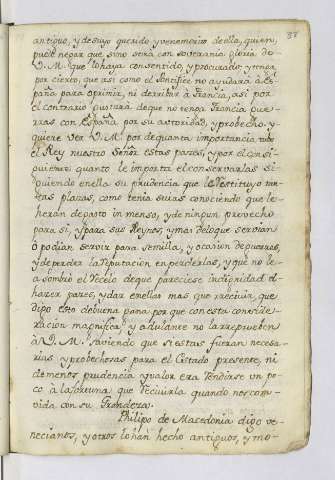 38
antiguo, y de suyo querido, y venemerito de ella, quien
puede negar que sino otra con soverania gloria de
V. M. que lo haya consentido, y procurado y tenga
por cierto, que asi como el Pontifice no ayudará à Es
paña para oprimir, ni destruir à Francia, asi por
el contrario gustará de que no tenga Francia gue-
rras con España por su autoridad, y probecho. y
quiere ver V. M. por de quanta importancia
el Rey nuestro Señor estas pazes, y por el consi-
guiente quanto le importa el conservarlas si-
guiendo en ella su prudencia que le restituyo tan
tas plazas, como tenia suras conociendo que le
heran de gasto inmenso, y de ningun provecho
para si, y para sus Reynos, y mas de lo que servian
ò podian servir para semilla, y ocasion de guerras,
y de perder la Reputacion en perderlas, y que no le
asombró el Recelo de que pareciese indignidad el
hazer pazes, y dar en ellas mas que recivia, que
digo esto de buena gana por que con esta conside-
racion magnifica, y adulante no la rreprueben
à V. M. saviendo que si estas fueran necesa-
rias y probechosas para el Estado presente, ni
de menos prudencia y valor era rendirse un po-
co à la fortuna que recivirla quando nos com-
vida con su Grandeza.
Philipo de Macedonia digo ve-
necianos, y otros lo han hecho antiguos, y mo-